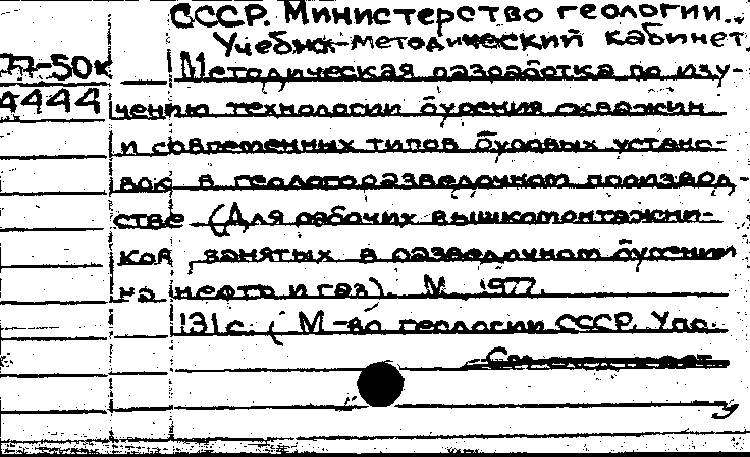 СССР. Министерство геологии.
Учебно-методический кабинет.
77-50к Методическая разработка по изу-
4444 чению технологии бурения скважин
и современных типов буровых устано-
вок в геологоразведочном производ-
стве (Для рабочих вышкомонтажни-
ков, занятых в разведочном бурении
на нефть и газ). М. 1977.
131с. ( М-во геологии СССР. Упр.
См. след. карт.